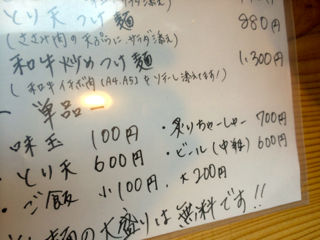 とり天つけ麺 880円
(ささみ肉の天ぷらに、サラダ添え)
和牛炒めつけ麺 1,300円
(和牛イチボ肉(A4.A5)をソテーし添えてます!)
ー単品ー
味玉 100円 ・炙りちゃーしゅー 700円
・とり天 600円 ・ビール(中瓶) 600円
・ご飯 小100円、大200円
麺の大盛りは無料です!!